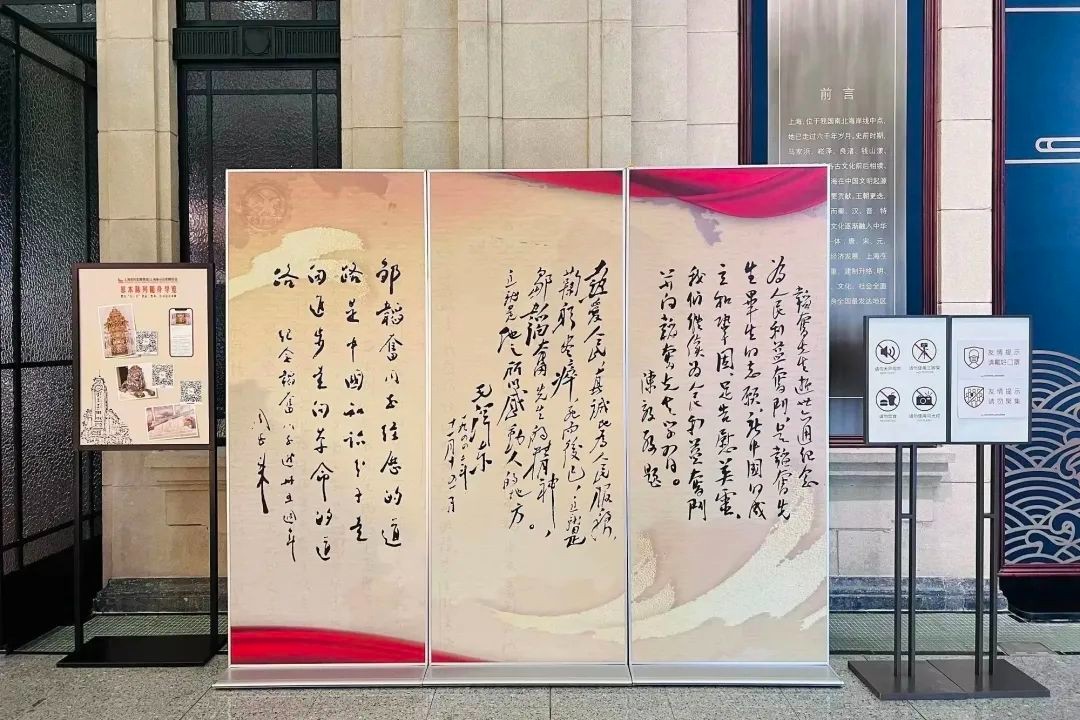 基本陈列随身导览
邹韬奋同志经历的道
路是中国知识分子走
向进步走向革命的道
路
纪念韬奋同志逝世五周年
周恩来
热爱人民,真诚地为人民服务,
鞠躬尽瘁,死而后已,这就是
邹韬奋先生的精神,
这就是他之所以感动人的地方。
毛泽东
一九四四年
十一月十五日
韬奋先生逝世六周纪念
为人民利益奋鬥,是韬奋先
生毕生的志愿,新中国的成
立和巩固,足告慰英灵、
我们继续为人民利益奋鬥
并向韬奋先生学习。
陈毅敬题
前言
上海,位于我国南北海岸线中点,
她已走过六千年岁月。史前时期,
马家浜、崧泽、良渚、钱山漾、
古文化前后相续,
海在中国文明起源
要贡献。王朝更迭,
而秦、汉、晋、特
文化逐渐融入中华
一体。唐、宋、元、
经济发展,上海在
重,建制升格。明、
、文化、社会全面
身全国最发达地区
请勿大声喧哗
请勿使用三脚架
请勿饮食
请勿使用闪光灯
友情提示
请戴好口罩
友情提示
请勿聚集